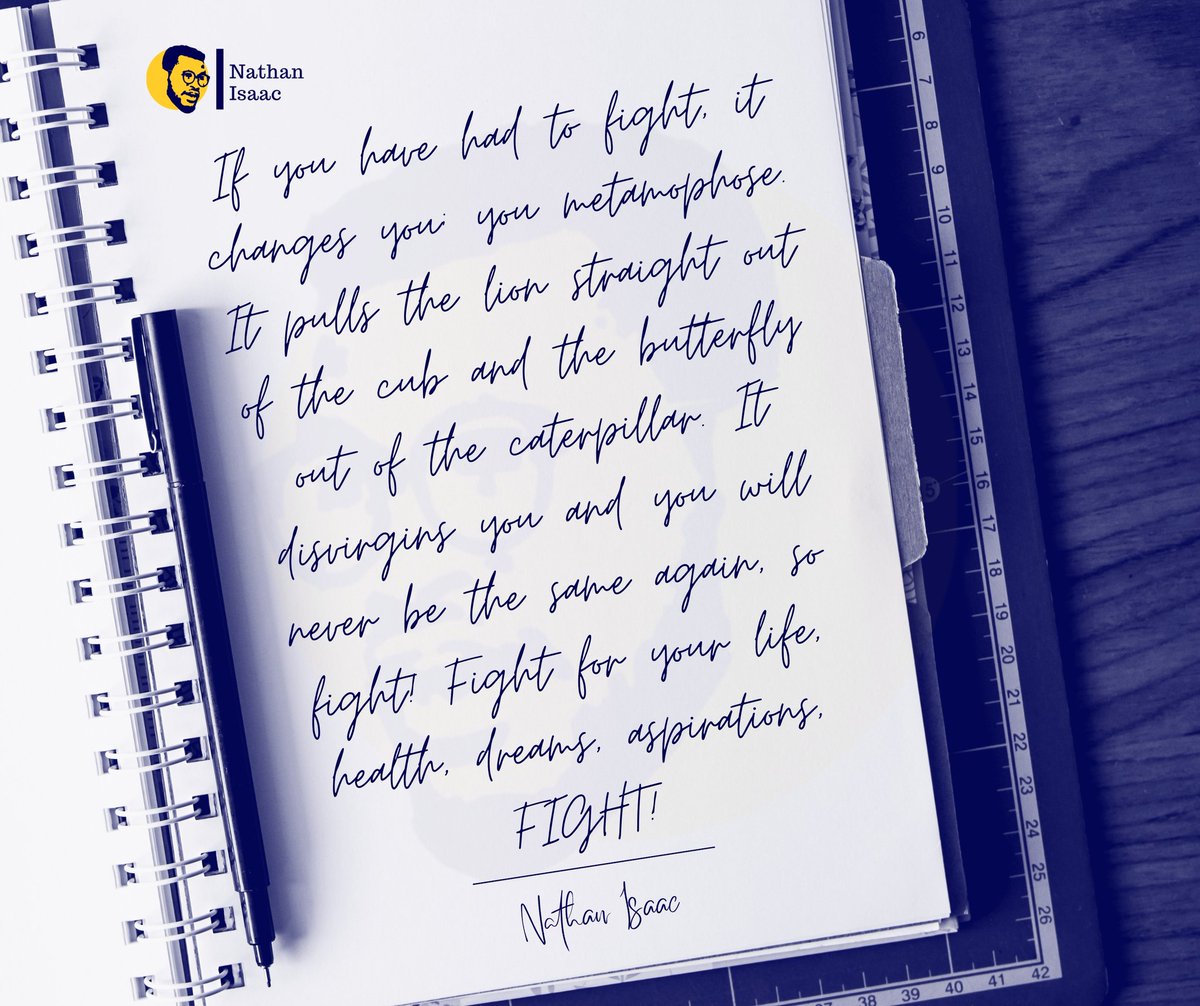 Nathan
Isaac
If you have had to fight, it
changes you; you metamophose.
It pulls the lion straight out
of the cub and the butterfly
out of the caterpillar. It
disvirgins you and you will
never be the same again, so
fight! Fight for your life,
health, dreams, aspirations,
FIGHT!
Nathan Isaac
6
7
8
9
10
11
12
13
14
15
16
17
18
19
20
21
22
23
24
25
26
38
39
40
41
42